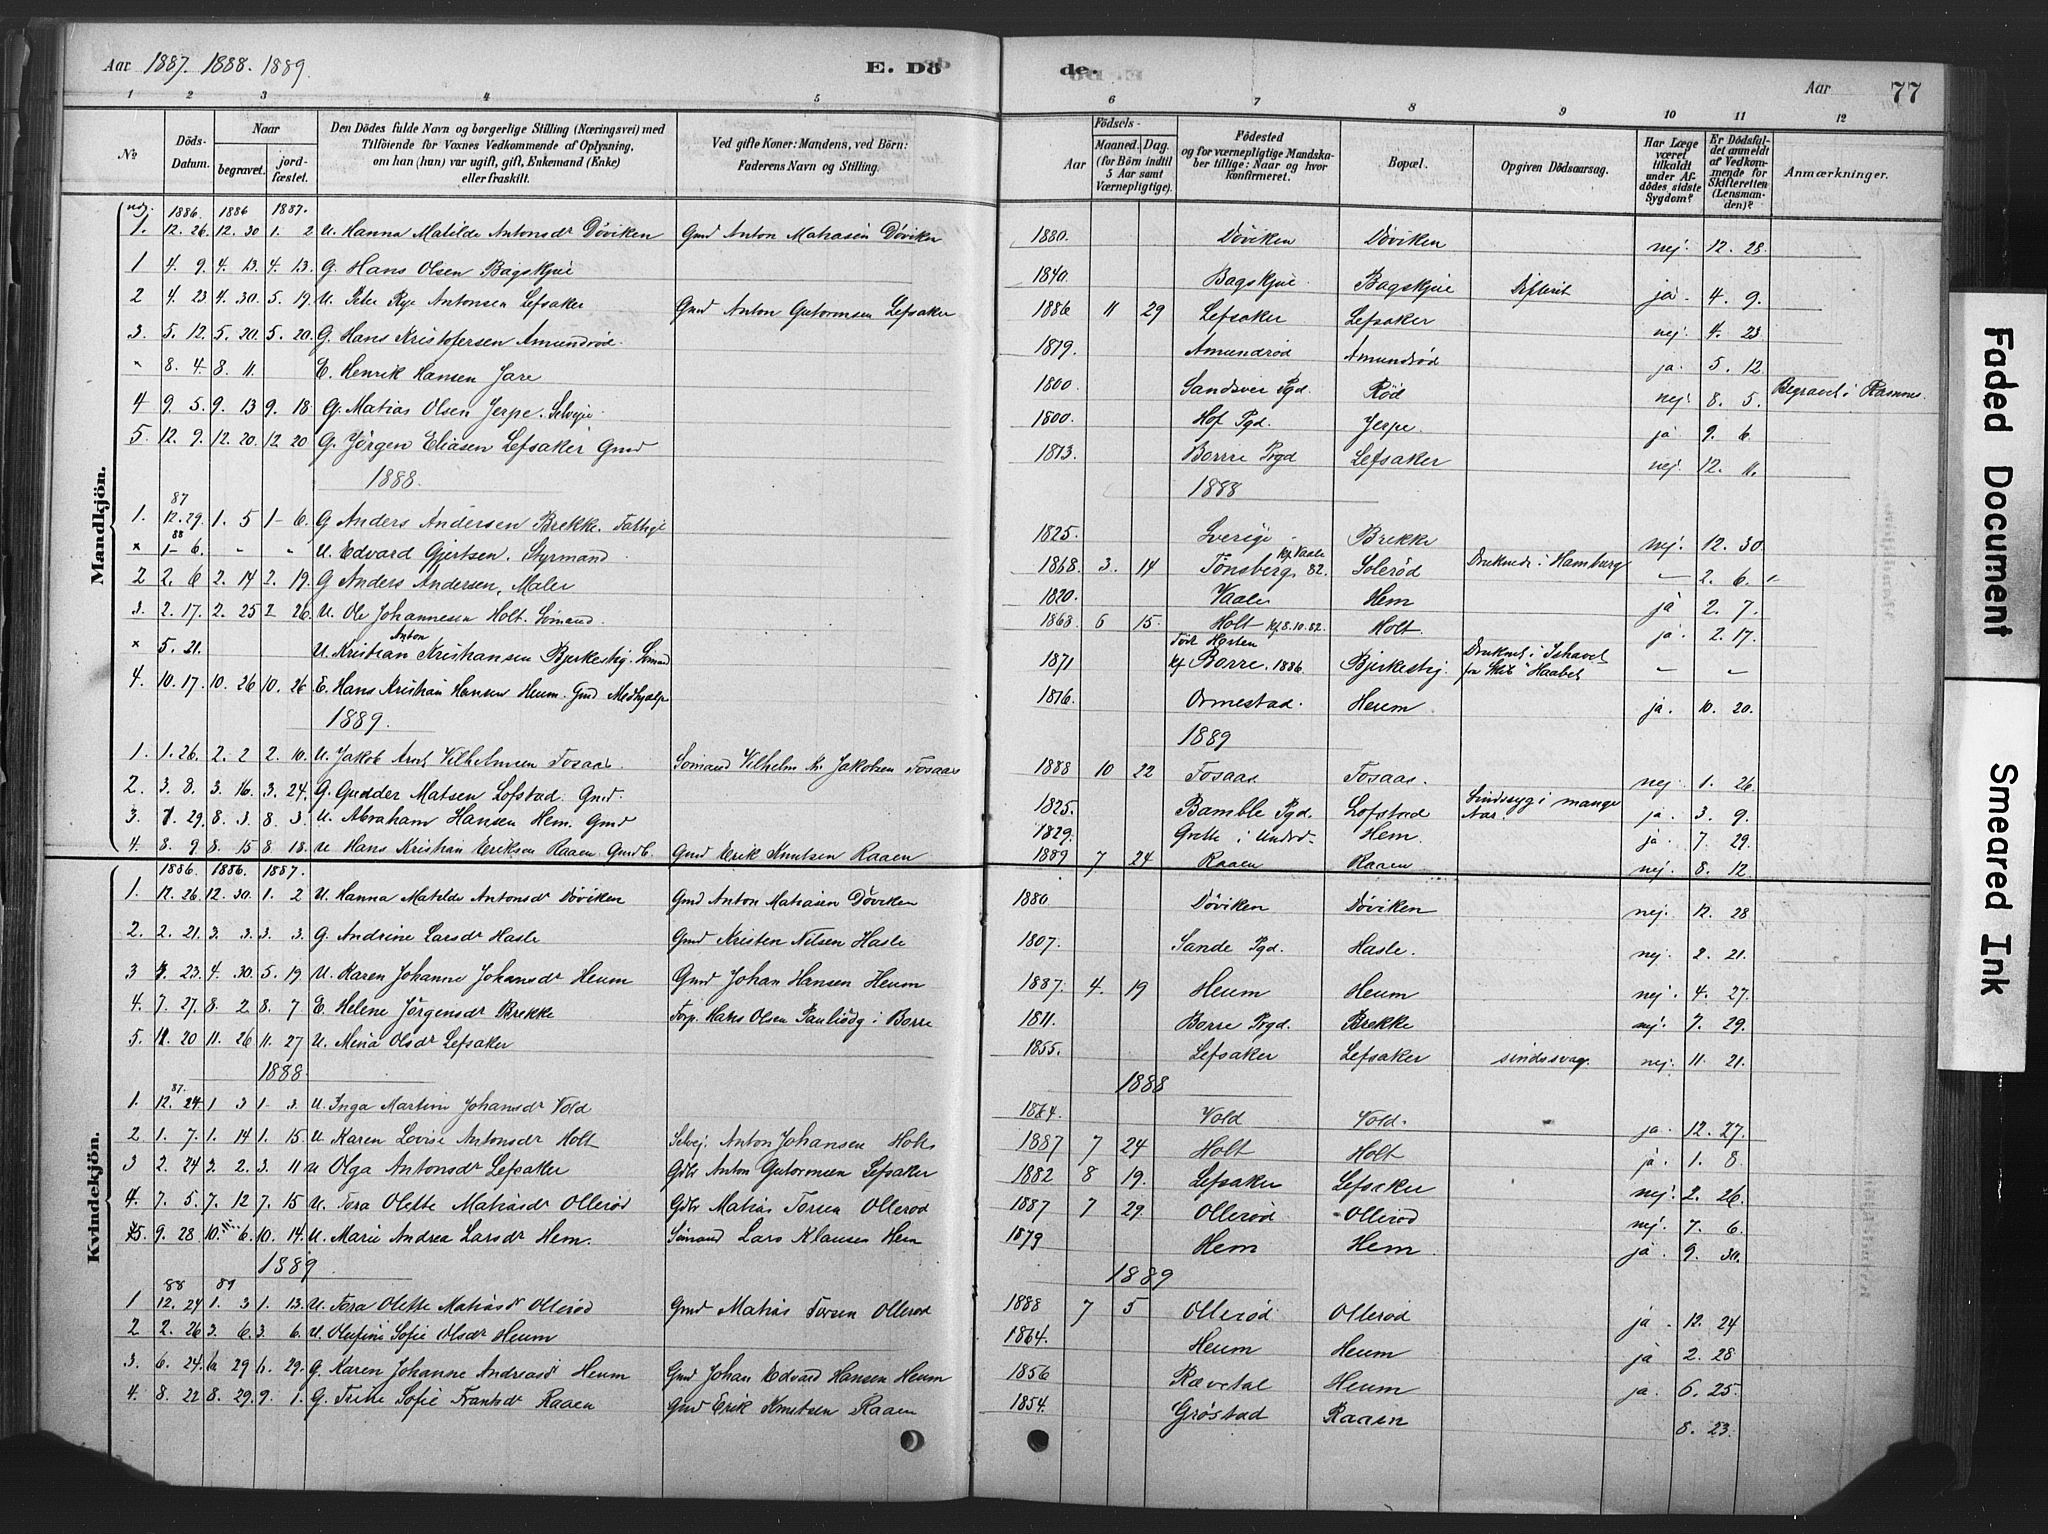 Aar 1887. 1888. 1889.
E. Dö
de.
Aar
77
1 2 3 4 5 6 7 8 9 10 11 12
No
Döds-Datum.
Naar
begravet.
jord-fæstet.
Den Dödes fulde Navn og borgerlige Stilling (Næringsvei) med Tilföiende for Voxnes Vedkommende af Oplysning, om han (hun) var ugift, gift, Enkemand (Enke) eller fraskilt.
Ved gifte Koner: Mandens, ved Börn: Faderens Navn og Stilling.
Aar
Födsels-
Maaned. Dag.
(for Börn indtil 5 Aar samt Værnepligtige).
Födested og for værnepligtige Mandskaber tillige: Naar og hvor konfirmeret.
Bopæl.
Opgiven Dödsaarsag.
Har Læge været tilkaldt under Afdödes sidste Sygdom?
Er Dödsfaldet anmeldt af Vedkommende for Skifteretten (Lensmanden)?
Anmærkninger.
Mandkjön.
1886. 1886 1887.
1. 12. 26. 12. 30 1. 2 U. Hanna Matilde Antonsdr Døviken Gmd Anton Mathisen Døviken 1880. Døviken Døviken nej. 12. 28.
1 4. 9. 4. 13. 4. 13. G. Hans Olsen Bagskjue 1840. Bagskjue. Bagskjue Difterit ja. 4. 9.
2 4. 23 4. 30. 5. 19. U. Peter Rye Antonsen Lefsaker Gmd Anton Gutormsen Lefsaker 1886 11 29 Lefsaker Lefsaker nej. 4. 23.
3. 5. 12. 5. 20. 5. 20. G. Hans Kristofersen Amundrød. 1819. Amundrød Amundrød ja. 5. 12.
× 8. 4. 8. 11. E. Henrik Hansen Jare 1800. Sandsver Pgd. Rød nej. 8. 5. Begravet i Ramnes.
4 9. 5. 9. 13 9. 18 G. Matias Olsen Jerpe. Selveje. 1800. Hof Pgd. Jerpe. ja 9. 6.
5. 12. 9. 12. 20. 12. 20 G. Jørgen Eliasen Lefsaker Gmd 1813. Borre Prgd Lefsaker nej. 12. 11.
1888. 1888
87
1. 12. 29. 1. 5 1- 6. G Anders Andersen Brekke. Fattigl 1825. Sverige Brekke nej. 12. 30
88
× 1- 6. " " U. Edvard Gjertsen. Styrmand. 1868. 3. 14 Tønsberg kf. Vaale 82. Solerød Druknede i Hamburg — 2. 6.
2 2. 6 2. 14 2. 19. G Anders Andersen, Maler 1820. Vaale Hem ja 2. 7.
3. 2. 17. 2. 25 2. 26. U. Ole Johannesen Holt. Sømand. 1868 6 15. Holt kf. 8.10.82. Holt. ja. 2. 17.
× 5. 21. U. Kristian Anton Kristiansen Bjerkestig. Sømand 1871 født Horten kf Borre. 1886. Bjerkestig. Druknet i Ishavet fra Skib "Haabet — —
4. 10. 17. 10. 26 10. 26 E. Hans Kristian Hansen Heum. Gmd Medhjælp 1816. Ormestad. Heum ja. 10. 20.
1889. 1889
1. 1. 26. 2. 2 2. 10. U. Jakob Arnt Vilhelmsen Fosaas. Sømand Vilhelm Kr. Jakobsen Fosaas 1888 10 22 Fosaas Fosaas. nej. 1. 26
2. 3. 8. 3. 16. 3. 24. G. Gudder Matsen Lofstad. Gmd. 1825. Bamble Pgd. Lofstad Sindssyg i mange Aar. ja. 3. 9.
3. 7. 29. 8. 3. 8. 3. U. Abraham Hansen Hem. Gmd 1829. Hem. ja. 7. 29.
4. 8. 9 8. 15 8. 18. U Hans Kristian Eriksen Raaen. Gmdb. Gmd Erik Knutsen Raaen 1889 7 24 Raaen Raaen nej. 8. 12.
Kvindekjön.
1886. 1886. 1887.
1. 12. 26 12. 30. 1. 2 U. Hanna Matilde Antonsdr Døviken Gmd Anton Matiasen Døviken 1880 Døviken Døviken nej. 12. 28
2. 2. 21. 3. 3. 3. 3. G. Andrine Larsdr Hasle Gmd Kristen Nilsen Hasle 1807. Sande Pgd. Hasle. nej. 2. 21.
3 4. 23. 4. 30. 5. 19. U. Karen Johanne Johansdr Heum Gmd Johan Hansen Heum 1887. 4. 19 Heum Heum nej. 4. 27.
4. 7. 27. 8. 2. 8. 7 E. Helene Jørgensdr Brekke Torp. Hans Olsen i Borre 1811. Borre Prgd. Brekke nej. 7. 29.
5. 11. 20 11. 26 11. 27 U. Mina Olsdr Lefsaker 1855. Lefsaker Lefsaker sindssvag. nej. 11. 21.
1888. 1888
87.
1. 12. 24. 1 3 1- 3. U. Inga Martine Johansdr Vold 1864. Vold Vold. ja. 12. 27.
2. 1. 7. 1. 14 1. 15. U. Karen Lovise Antonsdr Holt Selvej. Anton Johansen Holt 1887 7 24 Holt Holt ja. 1. 8.
3 2. 24 3. 2. 3. 11 U Olga Antonsdr Lefsaker Gdbr Anton Gutormsen Lefsaker 1882 8 19. Lefsaker Lefsaker nej. 2. 26.
4. 7. 5. 7. 12 7. 15 U. Tora Olette Matiasdr Ollerød Gdbr Matias Torsen Ollerød 1887 7 29. Ollerød Ollerød nej. 7. 6.
5. 9. 28 10. 6. 10. 14. U. Marie Andrea Larsdr Hem. Sømand Lars Klausen Hem 1879 Hem Hem. ja. 9. 30.
1889 1889
88 89
1 12. 24 1. 3 1. 13. U. Tora Olette Matiasdr Ollerød Gmd Matias Torsen Ollerød 1888 7 5 Ollerød Ollerød ja. 12. 24
2 2. 26 3. 6. 3. 6. U. Olufine Sofie Olsdr Heum 1864. Heum Heum ja 2. 28
3. 6. 24. 6 29 6. 29. G. Karen Johanne Andreasdr Heum Gmd Johan Edvard Hansen Heum 1856 Rævetal Heum ja. 6. 25.
4. 8. 22 8. 29. 9. 1. G. Trine Sofie Frantsdr Raaen Gmd Erik Knutsen Raaen 1854. Grøstad Raaen 8. 23.
Faded Document
Smeared Ink